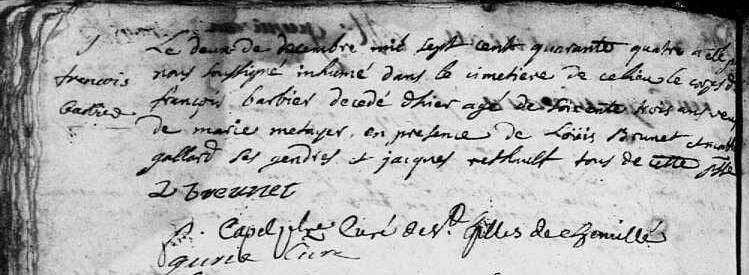 Le deux de decembre mil sept cent quarante quatre a eté p
françois
nous soussigné inhumé dans le cimetiere de ce lieu le corps d
barbier
françois barbier decedé d'hier agé de soixante trois ans veuf
de marie metayer, en presence de Loüis Brunet et
gallard ses gendres et jacques tous de cette psse
L Breunet
Capel ptre Curé de St. Gilles de Chemillé